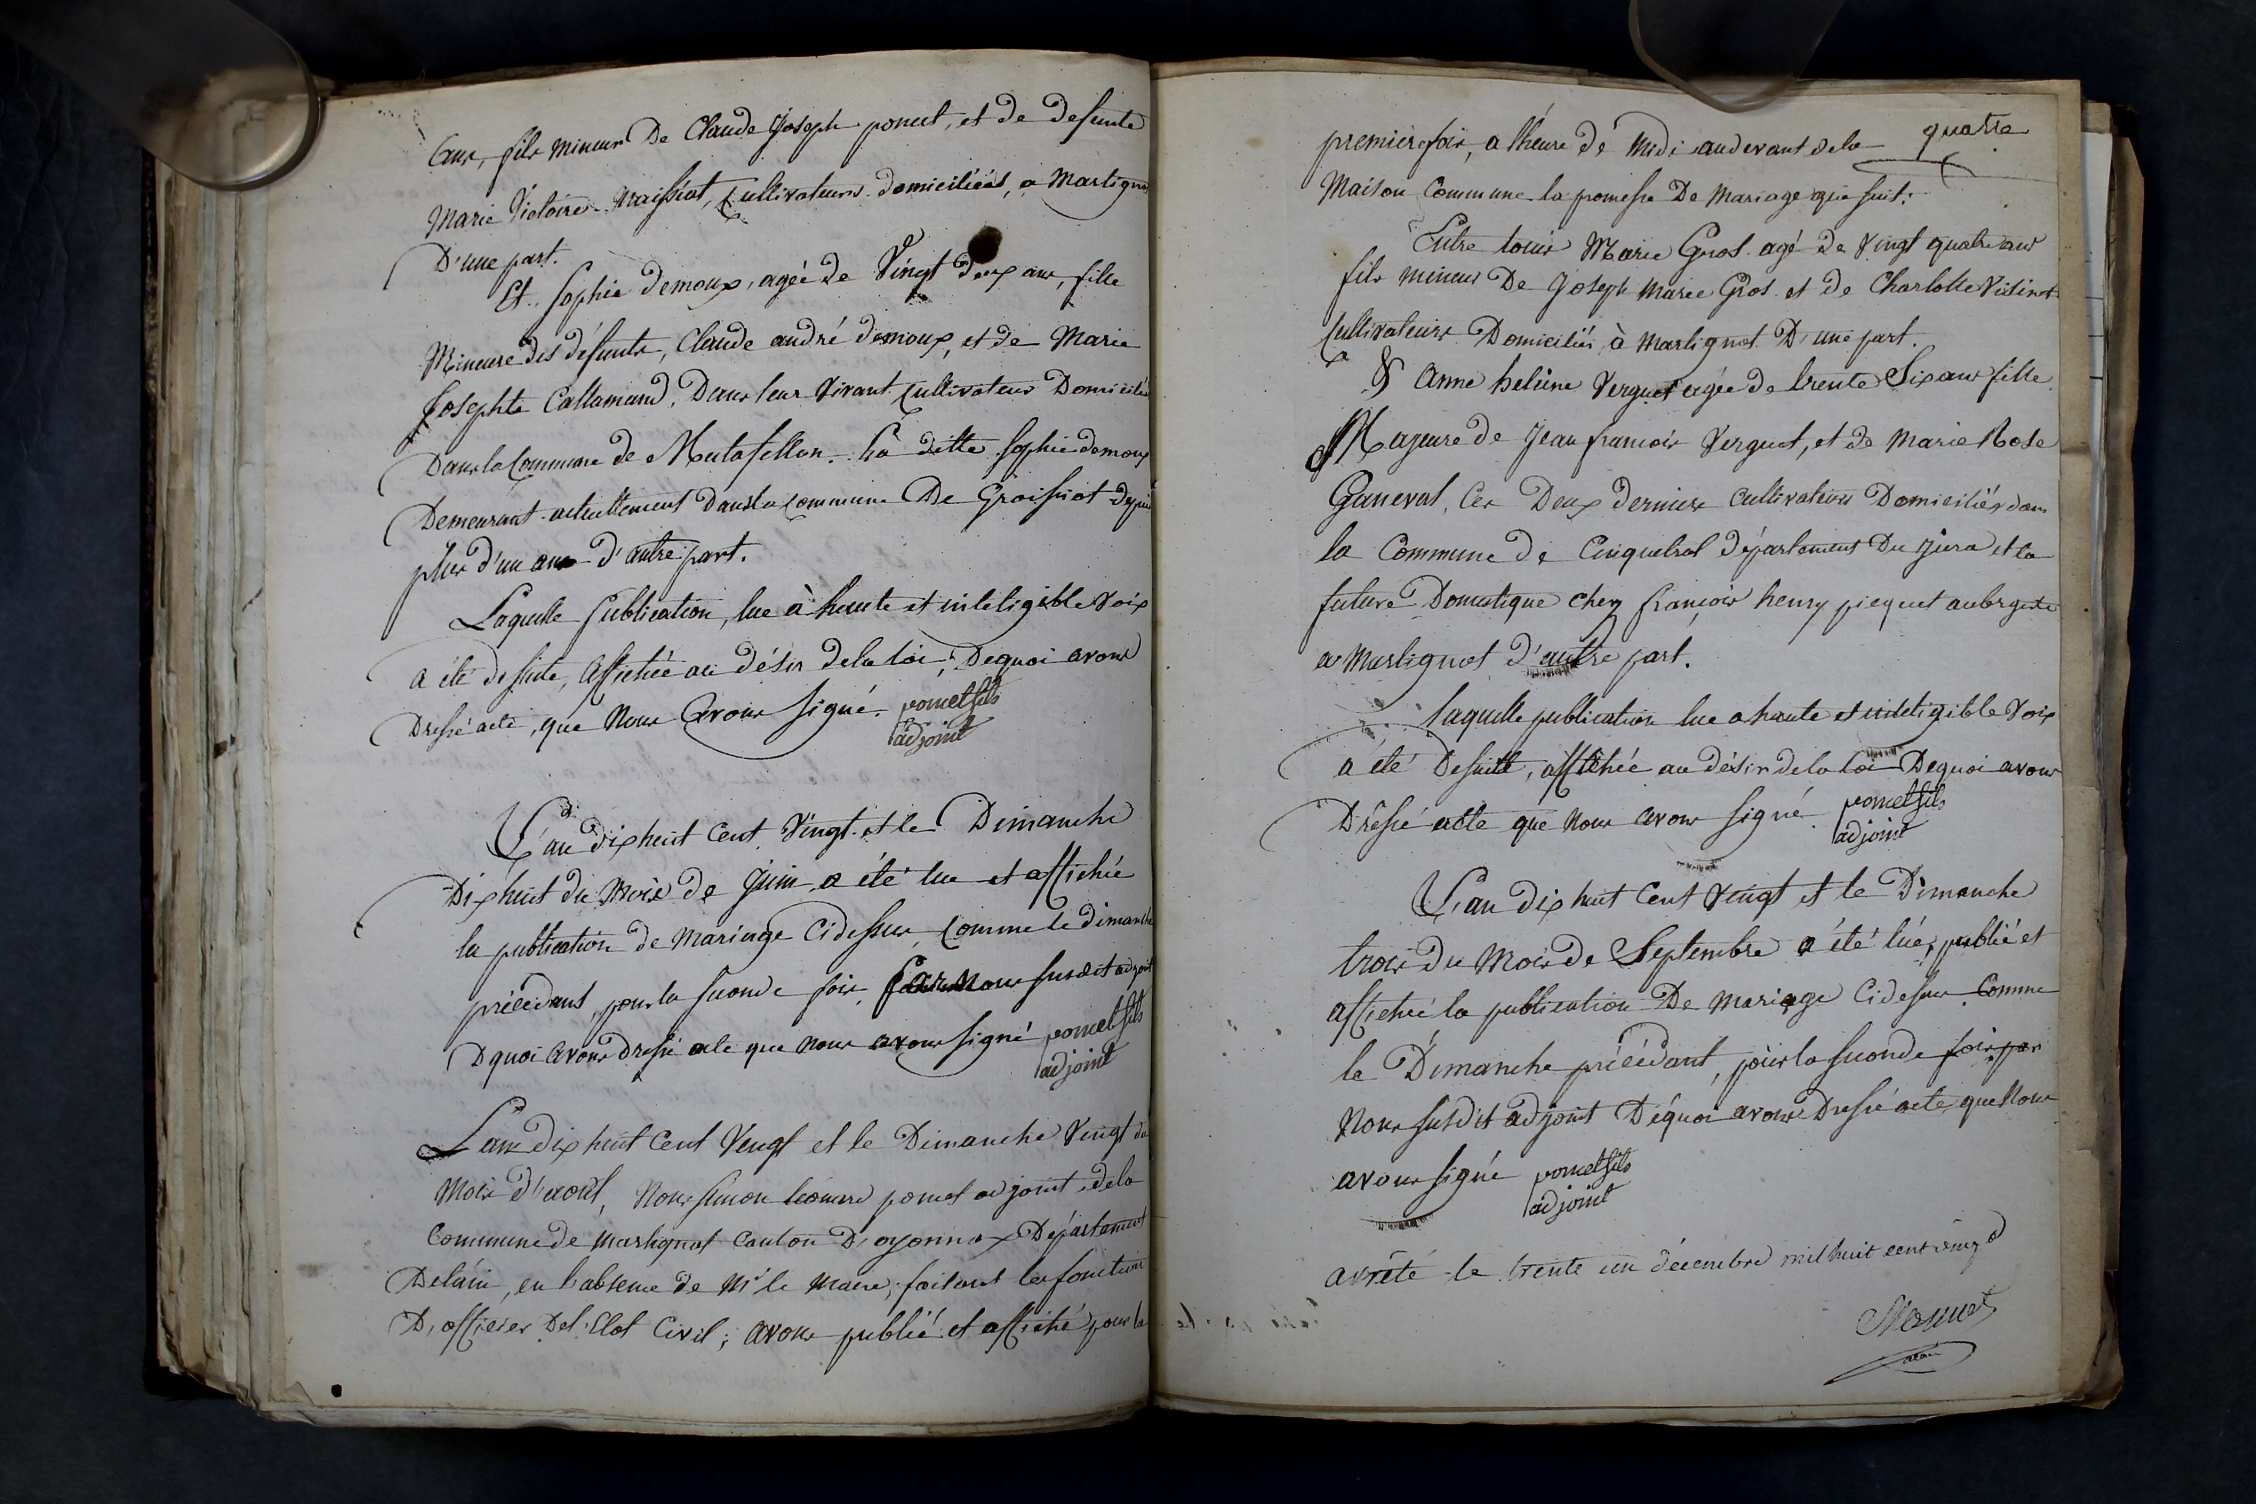 ans, fils mineur De Claude Joseph poncet, et de defunte
Marie Victoire Maissiat, Cultivateurs domiciliées, a Martignat
D'une part.
Et Sophie demoux, agée de Vingt deux ans, fille
Mineure des défunts, Claude andré demoux, et de Marie
Josephte Callamand, Dans leur Vivant Cultivateurs Domiciliés
Dans la Commune de Montafellon. La ditte Sophie demoux
Demeurant actuellement dans la Commune De Groissiat depuis
plus d'un ans d'autre part.
Laquelle publication, lue à haute et inteligible Voix
a été de suite, affichée au désir de la loi; Dequoi avons
Dressé acte, que Nous avons signé. pomet fils
adjoint
L'an dix huit Cent Vingt et le Dimanche
Dix huit du Mois de Juin, a été lue et affichée
la publication de Mariage Cidessus, Comme le dimanche
précédant, pour la seconde fois, par Nous susdit adjoint
Dquoi avons Dressé acte que Nous avons signé pomet fils
adjoint
L'an dix huit Cent Vingt et le Dimanche Vingt du
Mois d'aout, Nous Simon léonard pomet adjoint de la
Commune de Martignat Canton D'oyonnax Département
Delain, en l'absence de Mr le Maire, faisant les fonctions
D'officier Del'Etat Civil; avons publié et affiché pour la
quatre
premiere fois, a lhéure dé Midi audevant de la
Maison Commune la promesse De Mariage qui suit:
Entre louis Marie Gros agé de Vingt quatre ans
fils mineur De Joseph Marie Gros et de Charlotte
Cultivateurs Domiciliés à Martignat D'une part.
& Anne heléne Verguet agée de trente Six ans fille
Majeure de Jean françois Verguet, et de Marie Rose
Ganeval, Ces Deux derniers Cultivateurs Domiciliés dans
la Commune de Cinquetral Département Du Jura et la
future Domestique chez françois henry piquet aubergiste
a Martignat d'autre part.
laquelle publication lue a haute et inteligible Voix
a été Desuite, affichée au désir de la loi Dequoi avons
Dréssé acte que Nous avons signé. pomet fils
adjoint
L'an dix huit Cent Vingt et le Dimanche
trois du Mois de Septembre a été lue, publié et
affiché la publication De Mariage Cidesus Comme
le Dimanche précédant, pour la seconde fois par
Nous susdit adjoint Dequoi avons Dressé acte, que Nous
avons signé pomet fils
adjoint
arrêté le trente un décembre mil huit cent vingt